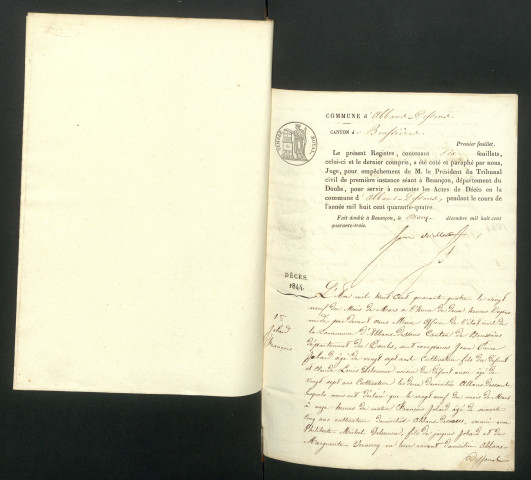 COMMUNE d'Abbans-Dessous
CANTON d Boussières
Premier feuillet.
Le présent Registre, contenant feuillets,
celui-ci et le dernier compris, a été coté et paraphé par nous,
Juge, pour empêchement de M. le Président du Tribunal
civil de première instance séant à Besançon, département du
Doubs, pour servir à constater les Actes de Décès en la
commune d'Abbans-Dessous, pendant le cours de
l'année mil huit cent quarante-quatre.
Fait double à Besançon, le décembre mil huit cent
quarante-trois.
TIMBRE ROYAL
DÉCÈS.
1844.
1er
Jobard
François
L'an mil huit cent quarante quatre le vingt
neuf du Mois de Mars à l'heure de deux heures après
midi par devant nous Maire officier de l'état civil de
la commune d'Abbans Dessous Canton de Boussières
Département du Doubs, sont comparus Jean Pierre
Jobard âgé de vingt sept ans Cultivateur fils du Défunt
et Claude Louis voisin du Défunt aussi âgé de
vingt sept ans Cultivateur les deux domiciliés Abbans Dessous
lesquels nous ont déclaré que le vingt neuf du mois de Mars
à onze heures du matin François Jobard âgé de
cinq ans cultivateur domicilié Abbans Dessous, marié à
fils de Jobard et de
Marguerite en leur vivant domiciliés Abbans-
Dessous